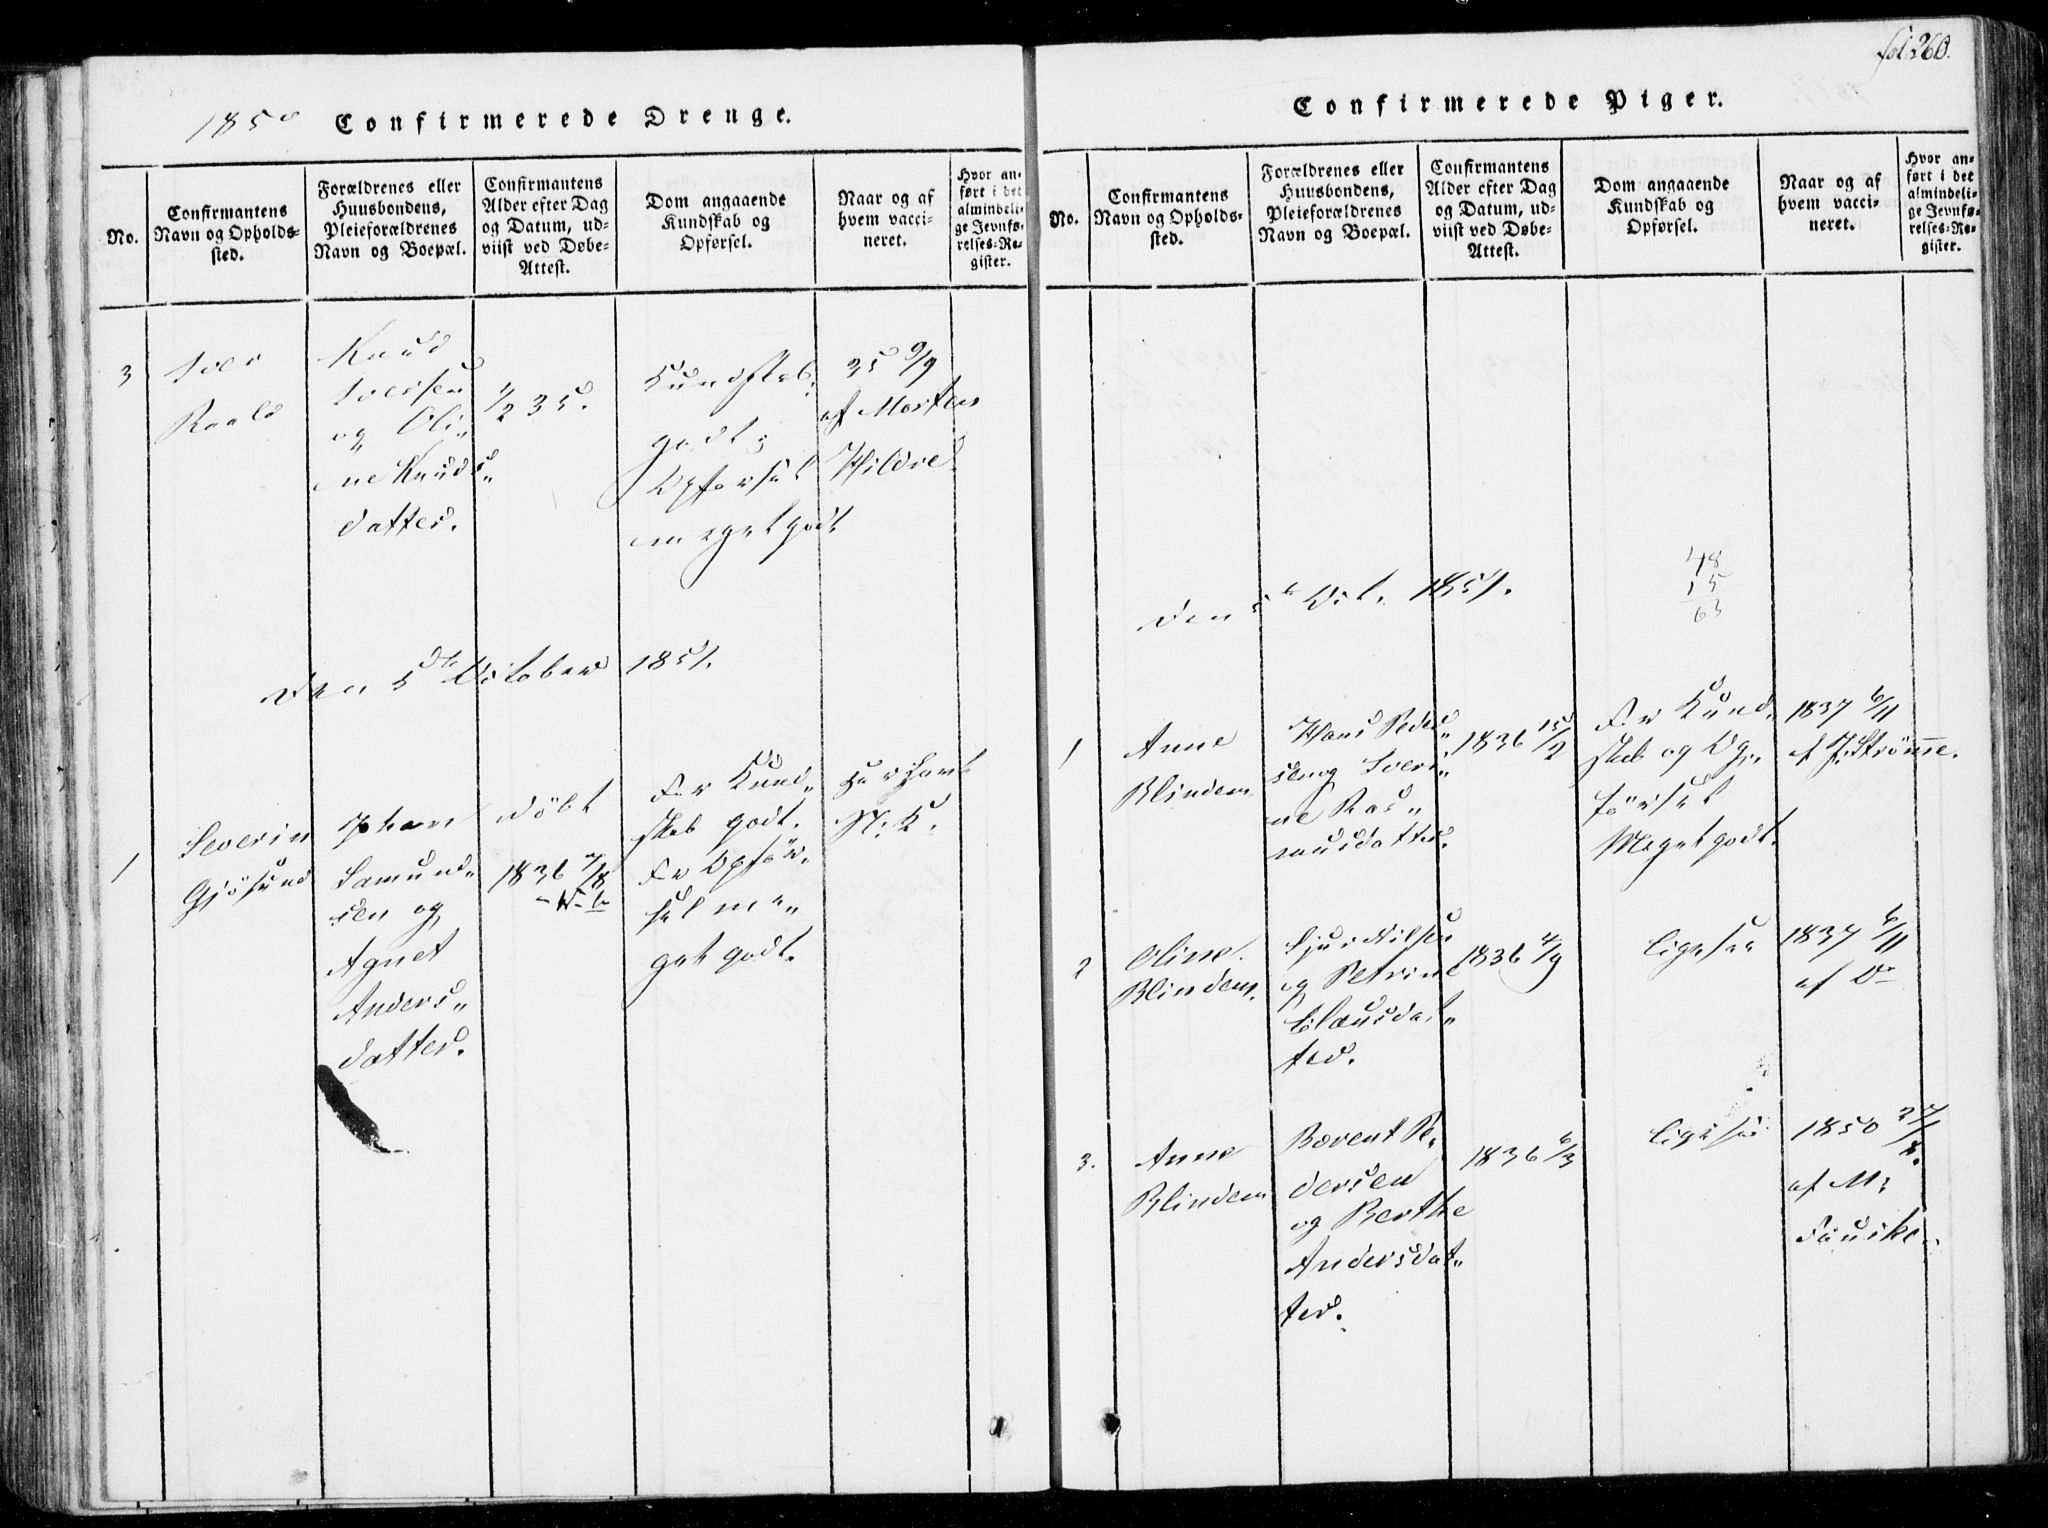 1850
Confirmerede Drenge.
No.
Confirmantens
Navn og Opholds-
sted.
Forældrenes eller
Huusbondens,
Pleieforældrenes
Navn og Boepæl.
Confirmantens
Alder efter Dag
og Datum, ud-
viist ved Døbe-
Attest.
Dom angaaende
Kundskab og
Opførsel.
Naar og af
hvem vacci-
neret.
Hvor an-
ført i det
almindeli-
ge Jevnfø-
relses-Re-
gister.
3
Iver
Raald
Knud
Iversen
og Oli-
ne Knuds-
datter.
1/2 35.
Kundskab
godt;
Opførsel
meget godt
35 9/9
af Morten
Hildre
Den 5te October 1851.
1
Severin
Gjøsund
Johan
Samund-
sen og
Agnet
Anders-
datter.
døbt
1836 7/8
For Kund-
skab godt.
For Opfør-
sel me-
get godt.
fol 260.
Confirmerede Piger.
No.
Confirmantens
Navn og Opholds-
sted.
Forældrenes eller
Huusbondens,
Pleieforældrenes
Navn og Boepæl.
Confirmantens
Alder efter Dag
og Datum, ud-
viist ved Døbe-
Attest.
Dom angaaende
Kundskab og
Opførsel.
Naar og af
hvem vacci-
neret.
Hvor an-
ført i det
almindeli-
ge Jevnfø-
relses-Re-
gister.
48
15
63
Den 5te Oct. 1851.
1
Anne
Blindem
Hans Peder-
sen og Iveri-
ne Ras-
musdatter.
1836 15/2
For Kund-
skab og Op-
førsel
Meget godt.
1837 6/11
af J. Strømme.
2
Oline
Blindem.
Sjur Nilsen
og Petrine
Clausdat-
ter.
1836 4/9
Ligesaa
1837 6/11
af Do
3.
Anne
Blindem
Bærent Pe-
dersen
og Berthe
Andersdat-
ter.
1836 6/3
Ligesaa
1850 27/
af M.
Fauske